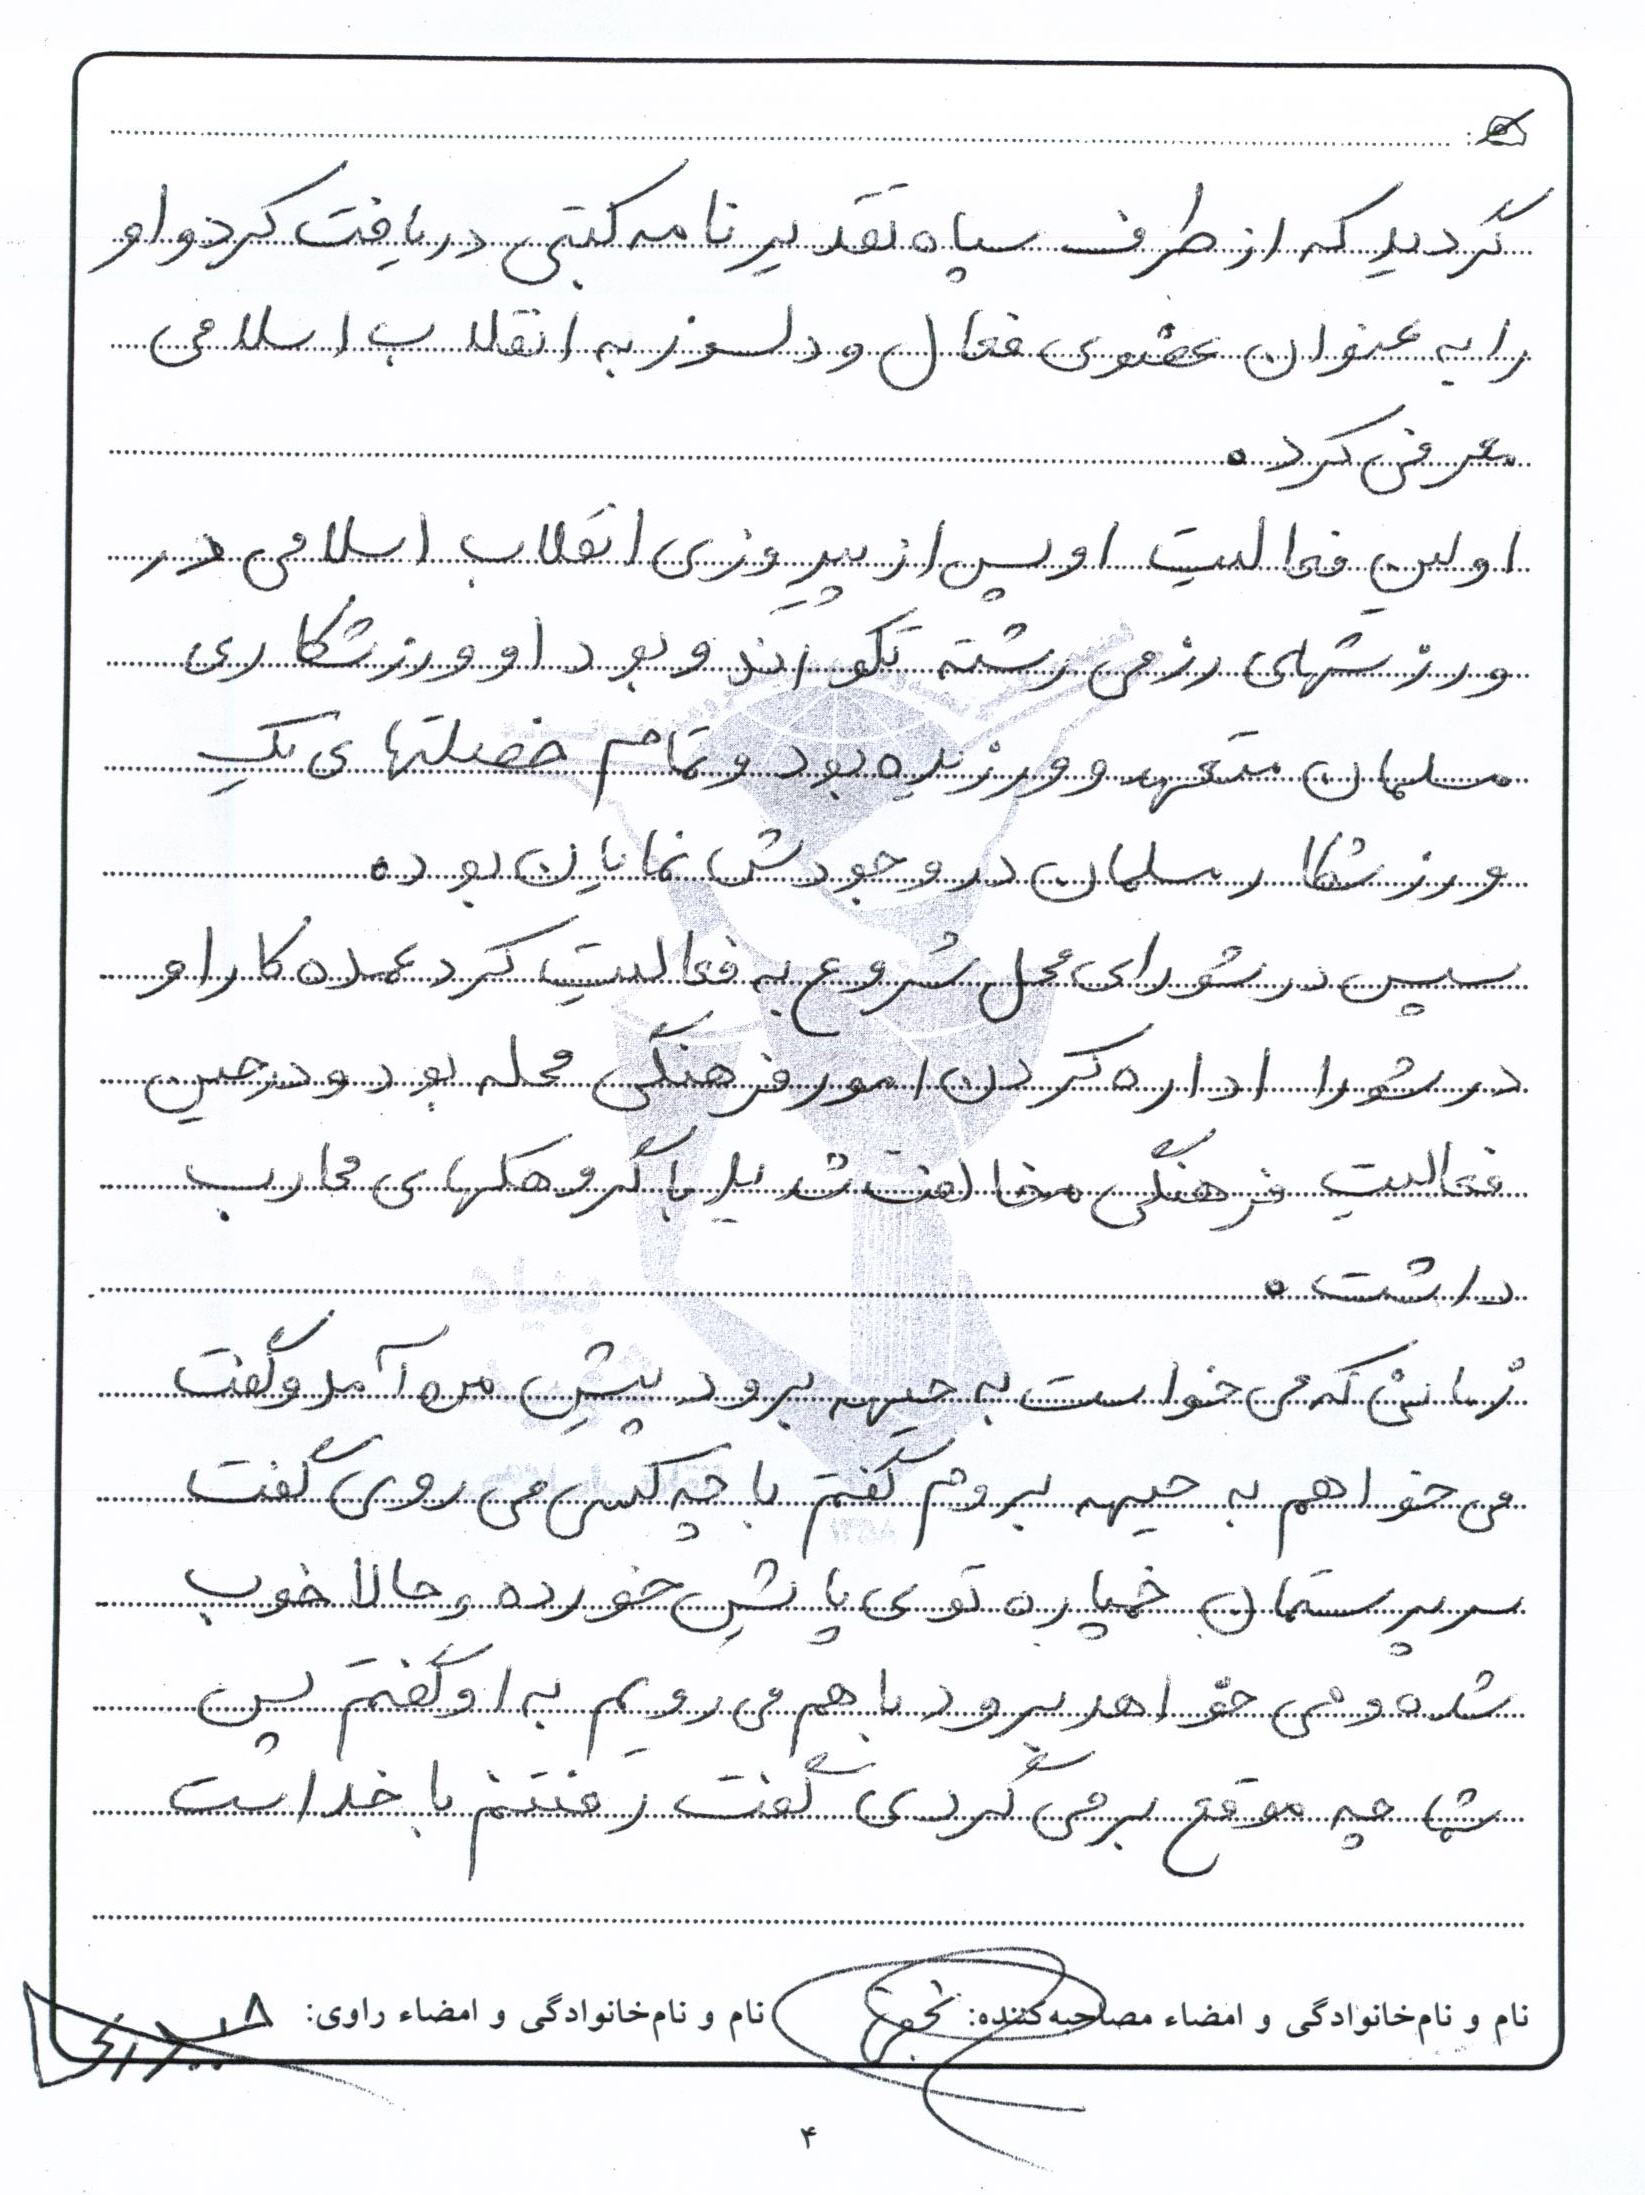 گردید که از طرف سپاه تقدیر نامه کتبی دریافت کرد و او
را به عنوان عضوی فعال و دلسوز به انقلاب اسلامی
معرفی کرد.
اولین فعالیت او پس از پیروزی انقلاب اسلامی در
ورزشهای رزمی رشته تکواندو بود او ورزشکاری
مسلمان متعهد و ورزیده بود و تمام خصلتهای یک
ورزشکار مسلمان در وجودش نمایان بود.
سپس در شورای محل شروع به فعالیت کرد عمده کار او
در شورا اداره کردن امور فرهنگی محله بود و در حین
فعالیت فرهنگی مخالفت شدید با گروهکهای محارب
داشت.
زمانی که می خواست به جبهه برود پیش من آمد و گفت
می خواهم به جبهه بروم گفتم با چه کسی می روی گفت
سرپرستمان خمپاره توی پایش خورده و حالا خوب
شده و می خواهد برود با هم می رویم به او گفتم پس
شما چه موقع برمی گردی گفت رفتنم با خداست
نام و نام‌خانوادگی و امضاء مصاحبه‌کننده:
نام و نام‌خانوادگی و امضاء راوی:
۴